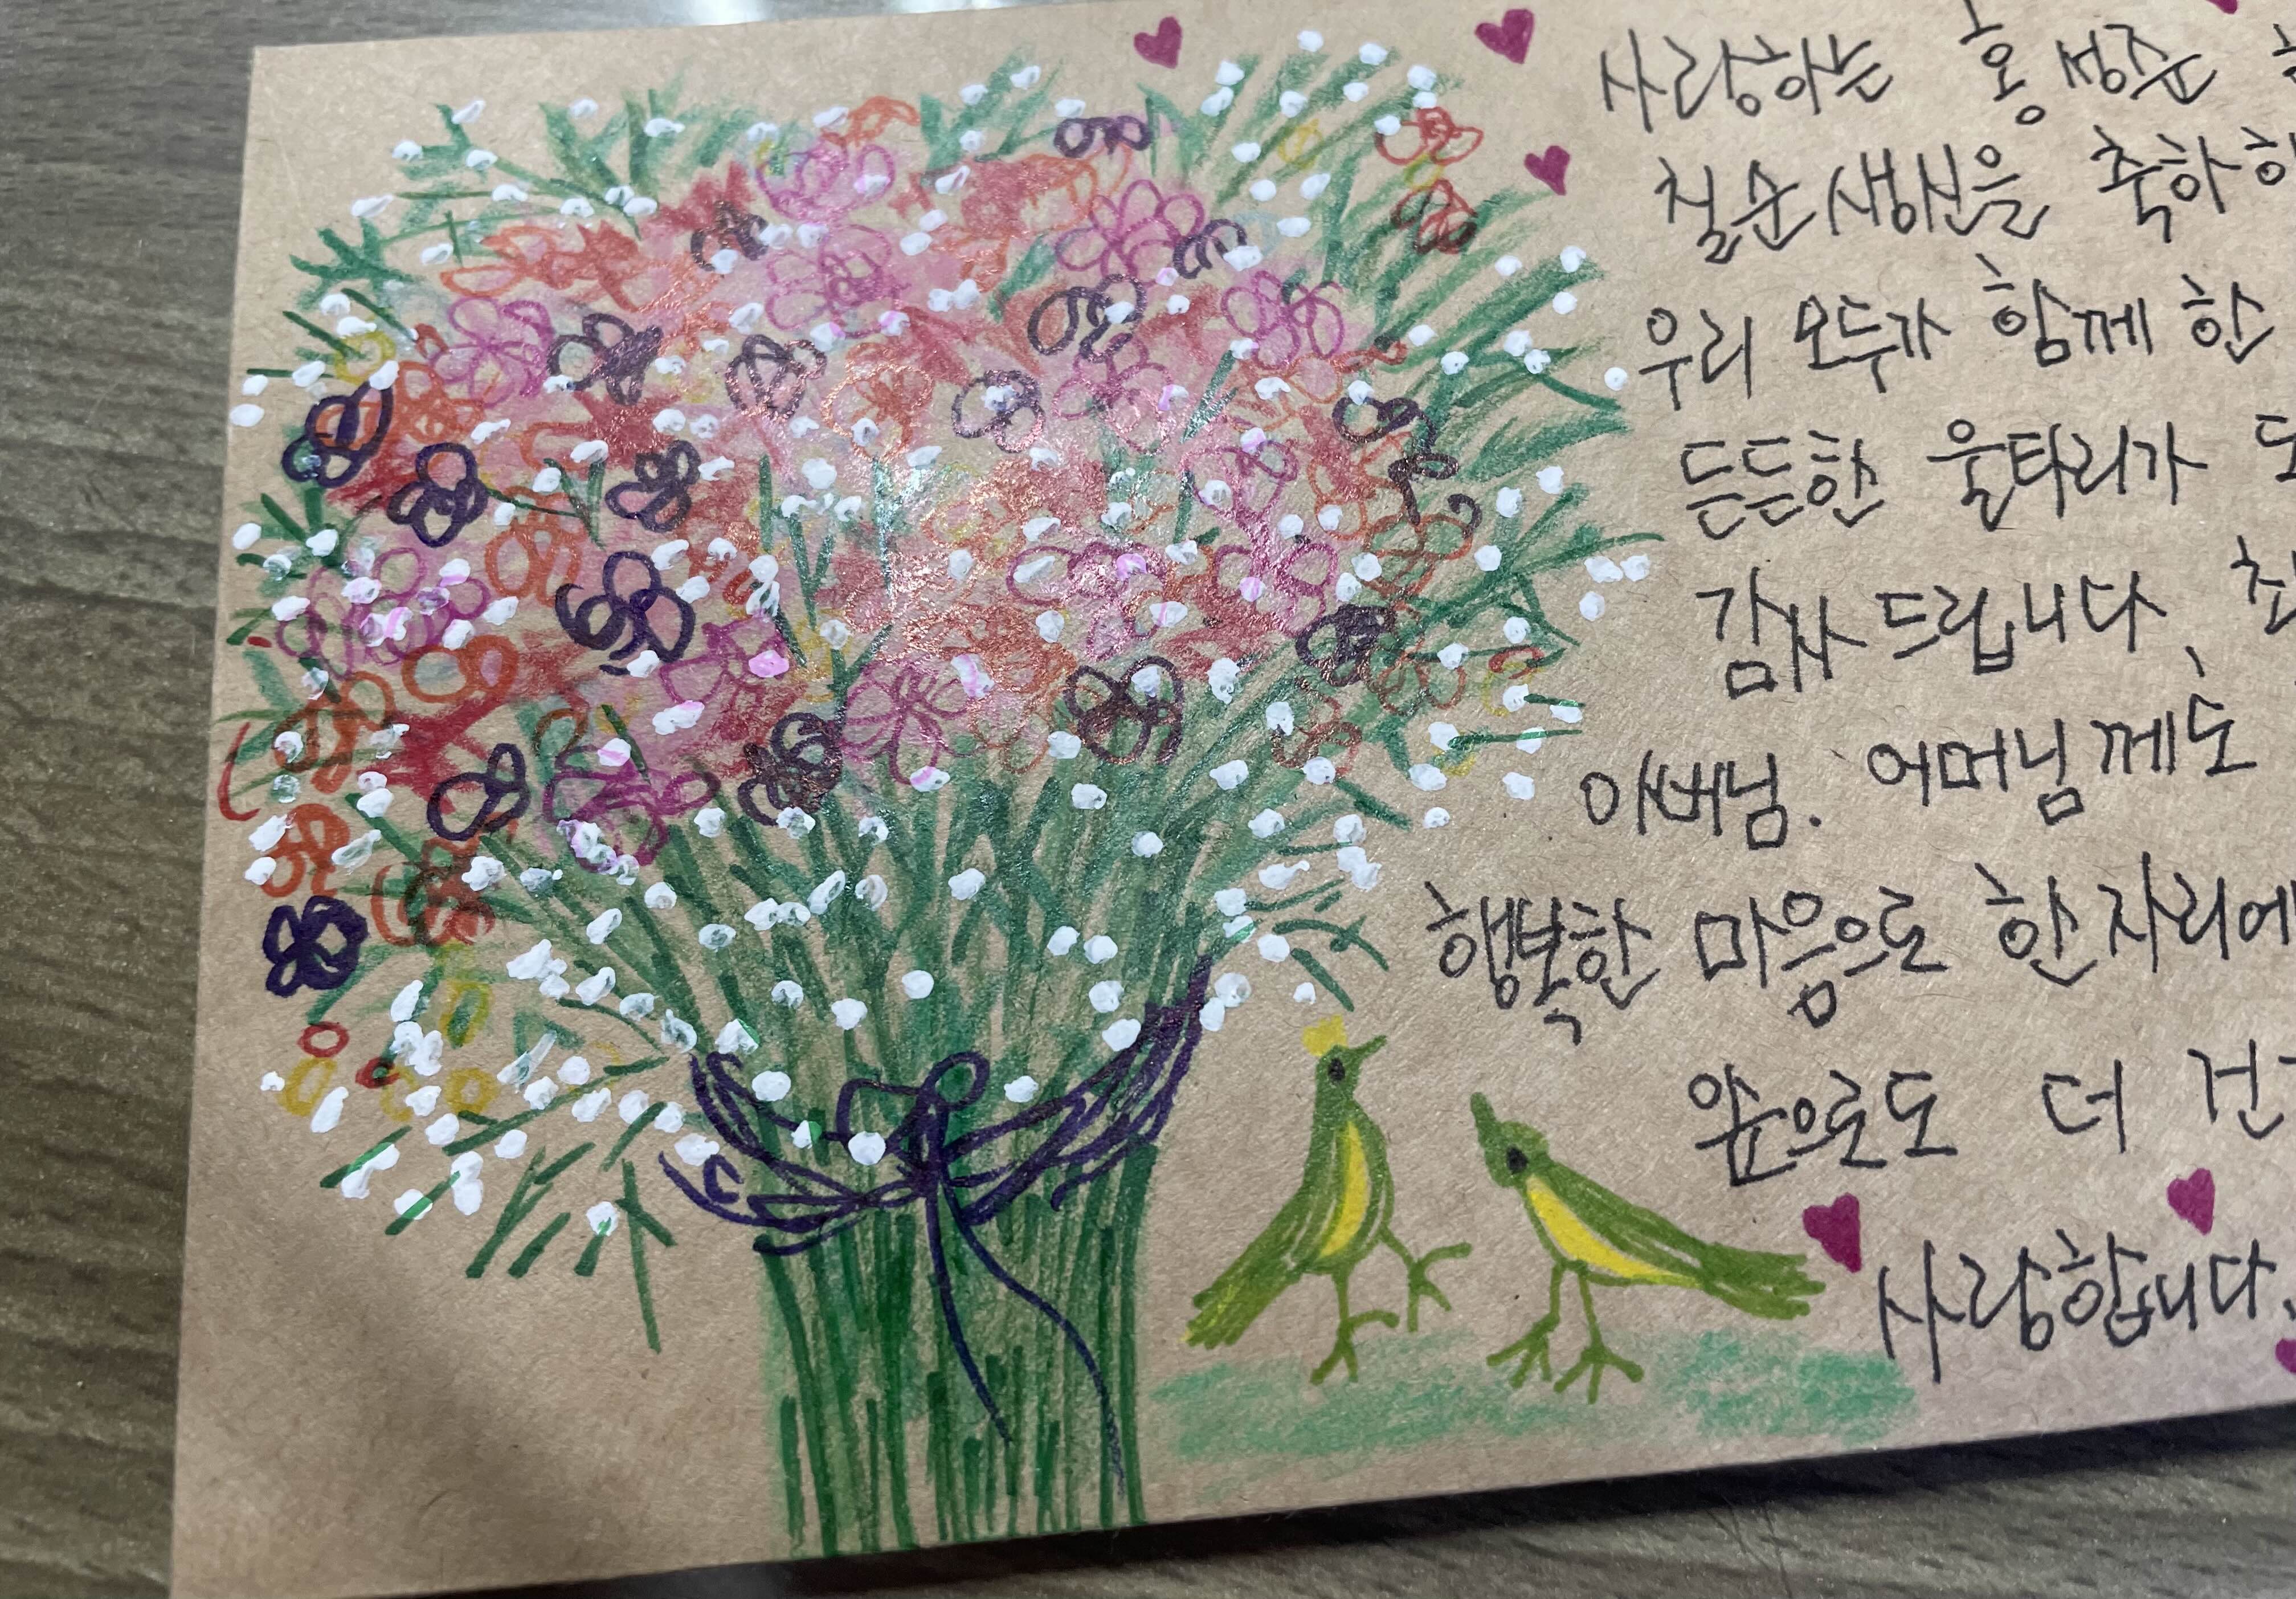 사랑하는 홍성준
칠순생신을 축하하
우리 모두가 함께 한
든든한 울타리가 되
감사드립니다.
아버님. 어머님께도
행복한 마음으로 한자리에
앞으로도 더 건
사랑합니다.